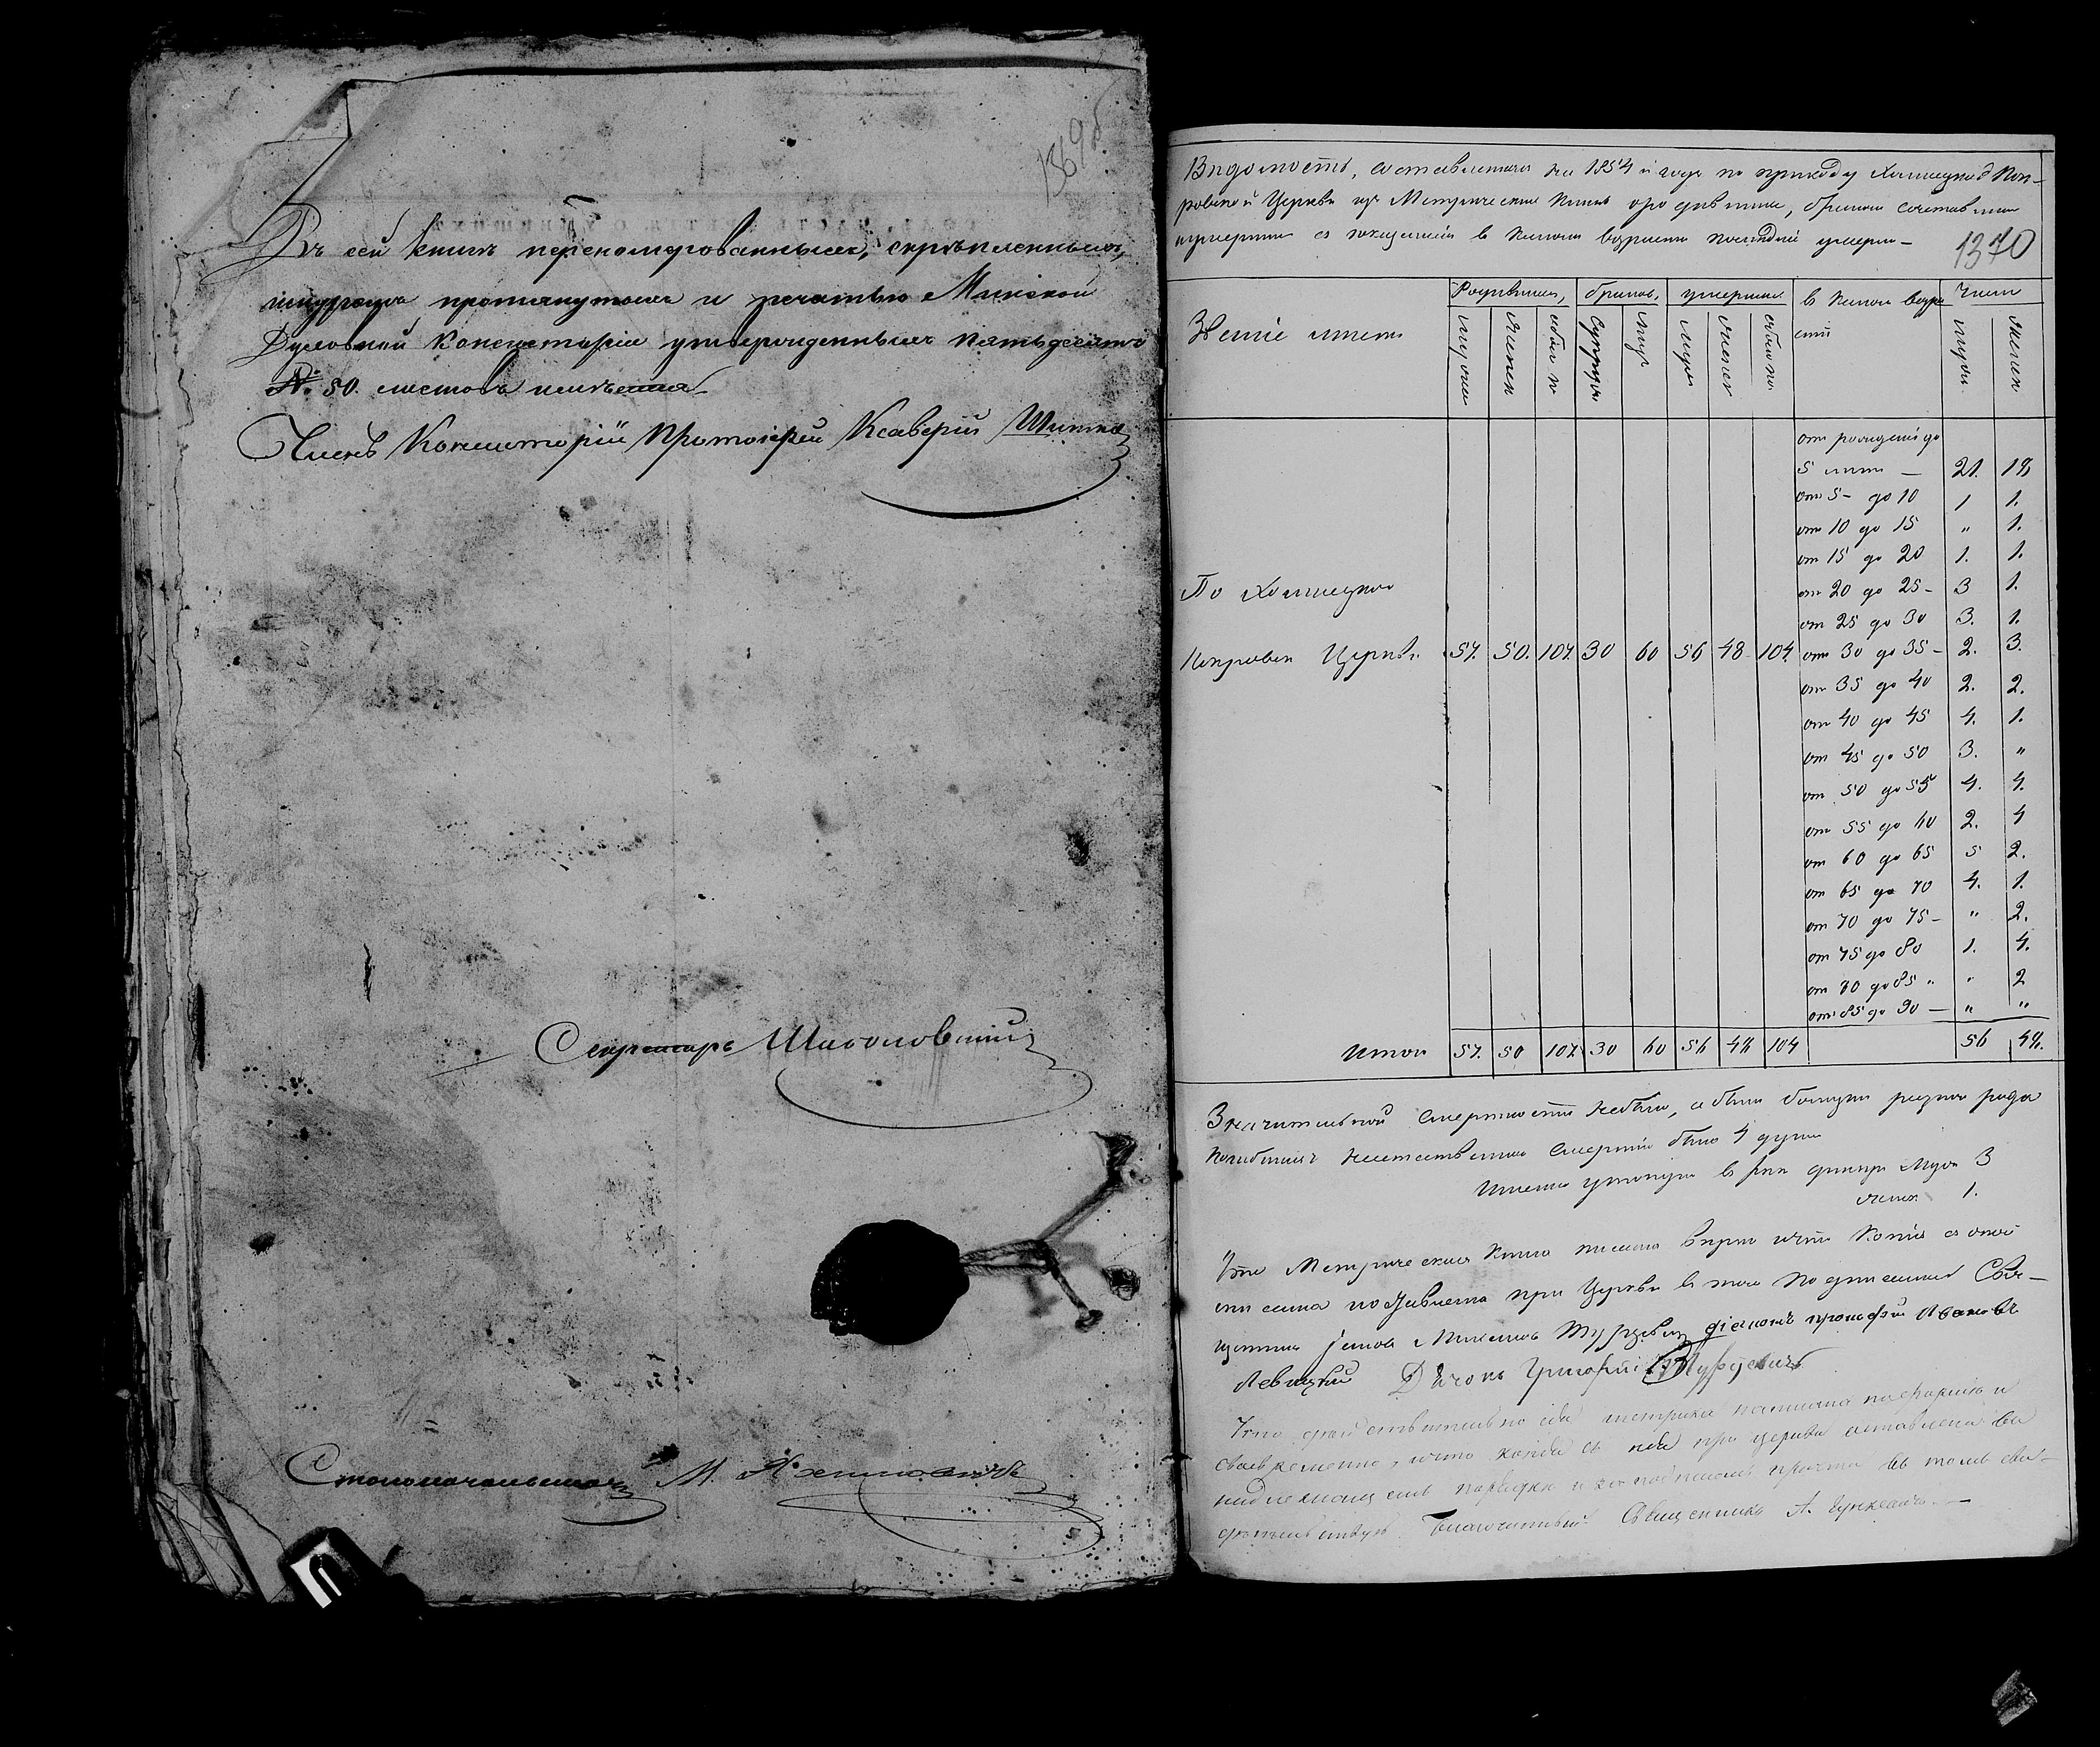 1369б
Въ сей книгѣ перенумерованныхъ, скрѣпленныхъ,
шнуромъ протянутыхъ и печатью Минской
Духовной Консисторіи утвержденныхъ пятьдесятъ
№ 50. листовъ
Членъ Консисторіи Протоіерей Ксаверій
Секретарь
Столоначальникъ М.
Вѣдомость, составленная на 1854 й годъ по приходу Холмецкой Пок-
ровской Церкви изъ Метрическихъ книгъ о родившихся, бракомъ сочетавшихся
и умершихъ съ показаніемъ в какомъ возрасте последніе умерли —
1370
Званіе местъ
Родившихся, браков, умершихъ в какомъ возра число
сте
мужеска женск обоего п супруж лиц мужес женск обоего по. мужск. женск
от рожденія до
5 летъ — 21. 18
от 5 - до 10 1 1.
от 10 до 15 " 1.
от 15 до 20 1. 1.
По Холмецкой
от 20 до 25 - 3 1.
от 25 до 30 3. 1.
Покровск Церкви. 57. 50. 107. 30 60 56 48 104. от 30 до 35 - 2. 3.
от 35 до 40 2. 2.
от 40 до 45 4. 1.
от 45 до 50 3. "
от 50 до 55 4. 4.
от 55 до 60 2. 4
от 60 до 65 5 2.
от 65 до 70 4. 1.
от 70 до 75 - " 2.
от 75 до 80 1. 4.
от 80 до 85 " " 2
от 85 до 90 — " "
Итого 57. 50 107. 30 60 56 48 104 56 48.
Значительной смертности небыло, а были болезни разного рода
Погибшихъ неестественною смертію было 4 души
Именно утонули в реке днепре Муж 3
женск 1.
Что Метрическая книга писана верно и что Копія с оной
списана и оставлена при Церкви в томъ подписались Свя-
щенникъ діаконъ
Левицкій Дьячокъ Григорій
Что действительно сія метрика написана по формѣ и
своевременно, и что копія съ нея при церкви оставлена въ
надлежащемъ порядкѣ и за подписомъ причта въ томъ сви-
детельствую. Благочинный Священникъ А.